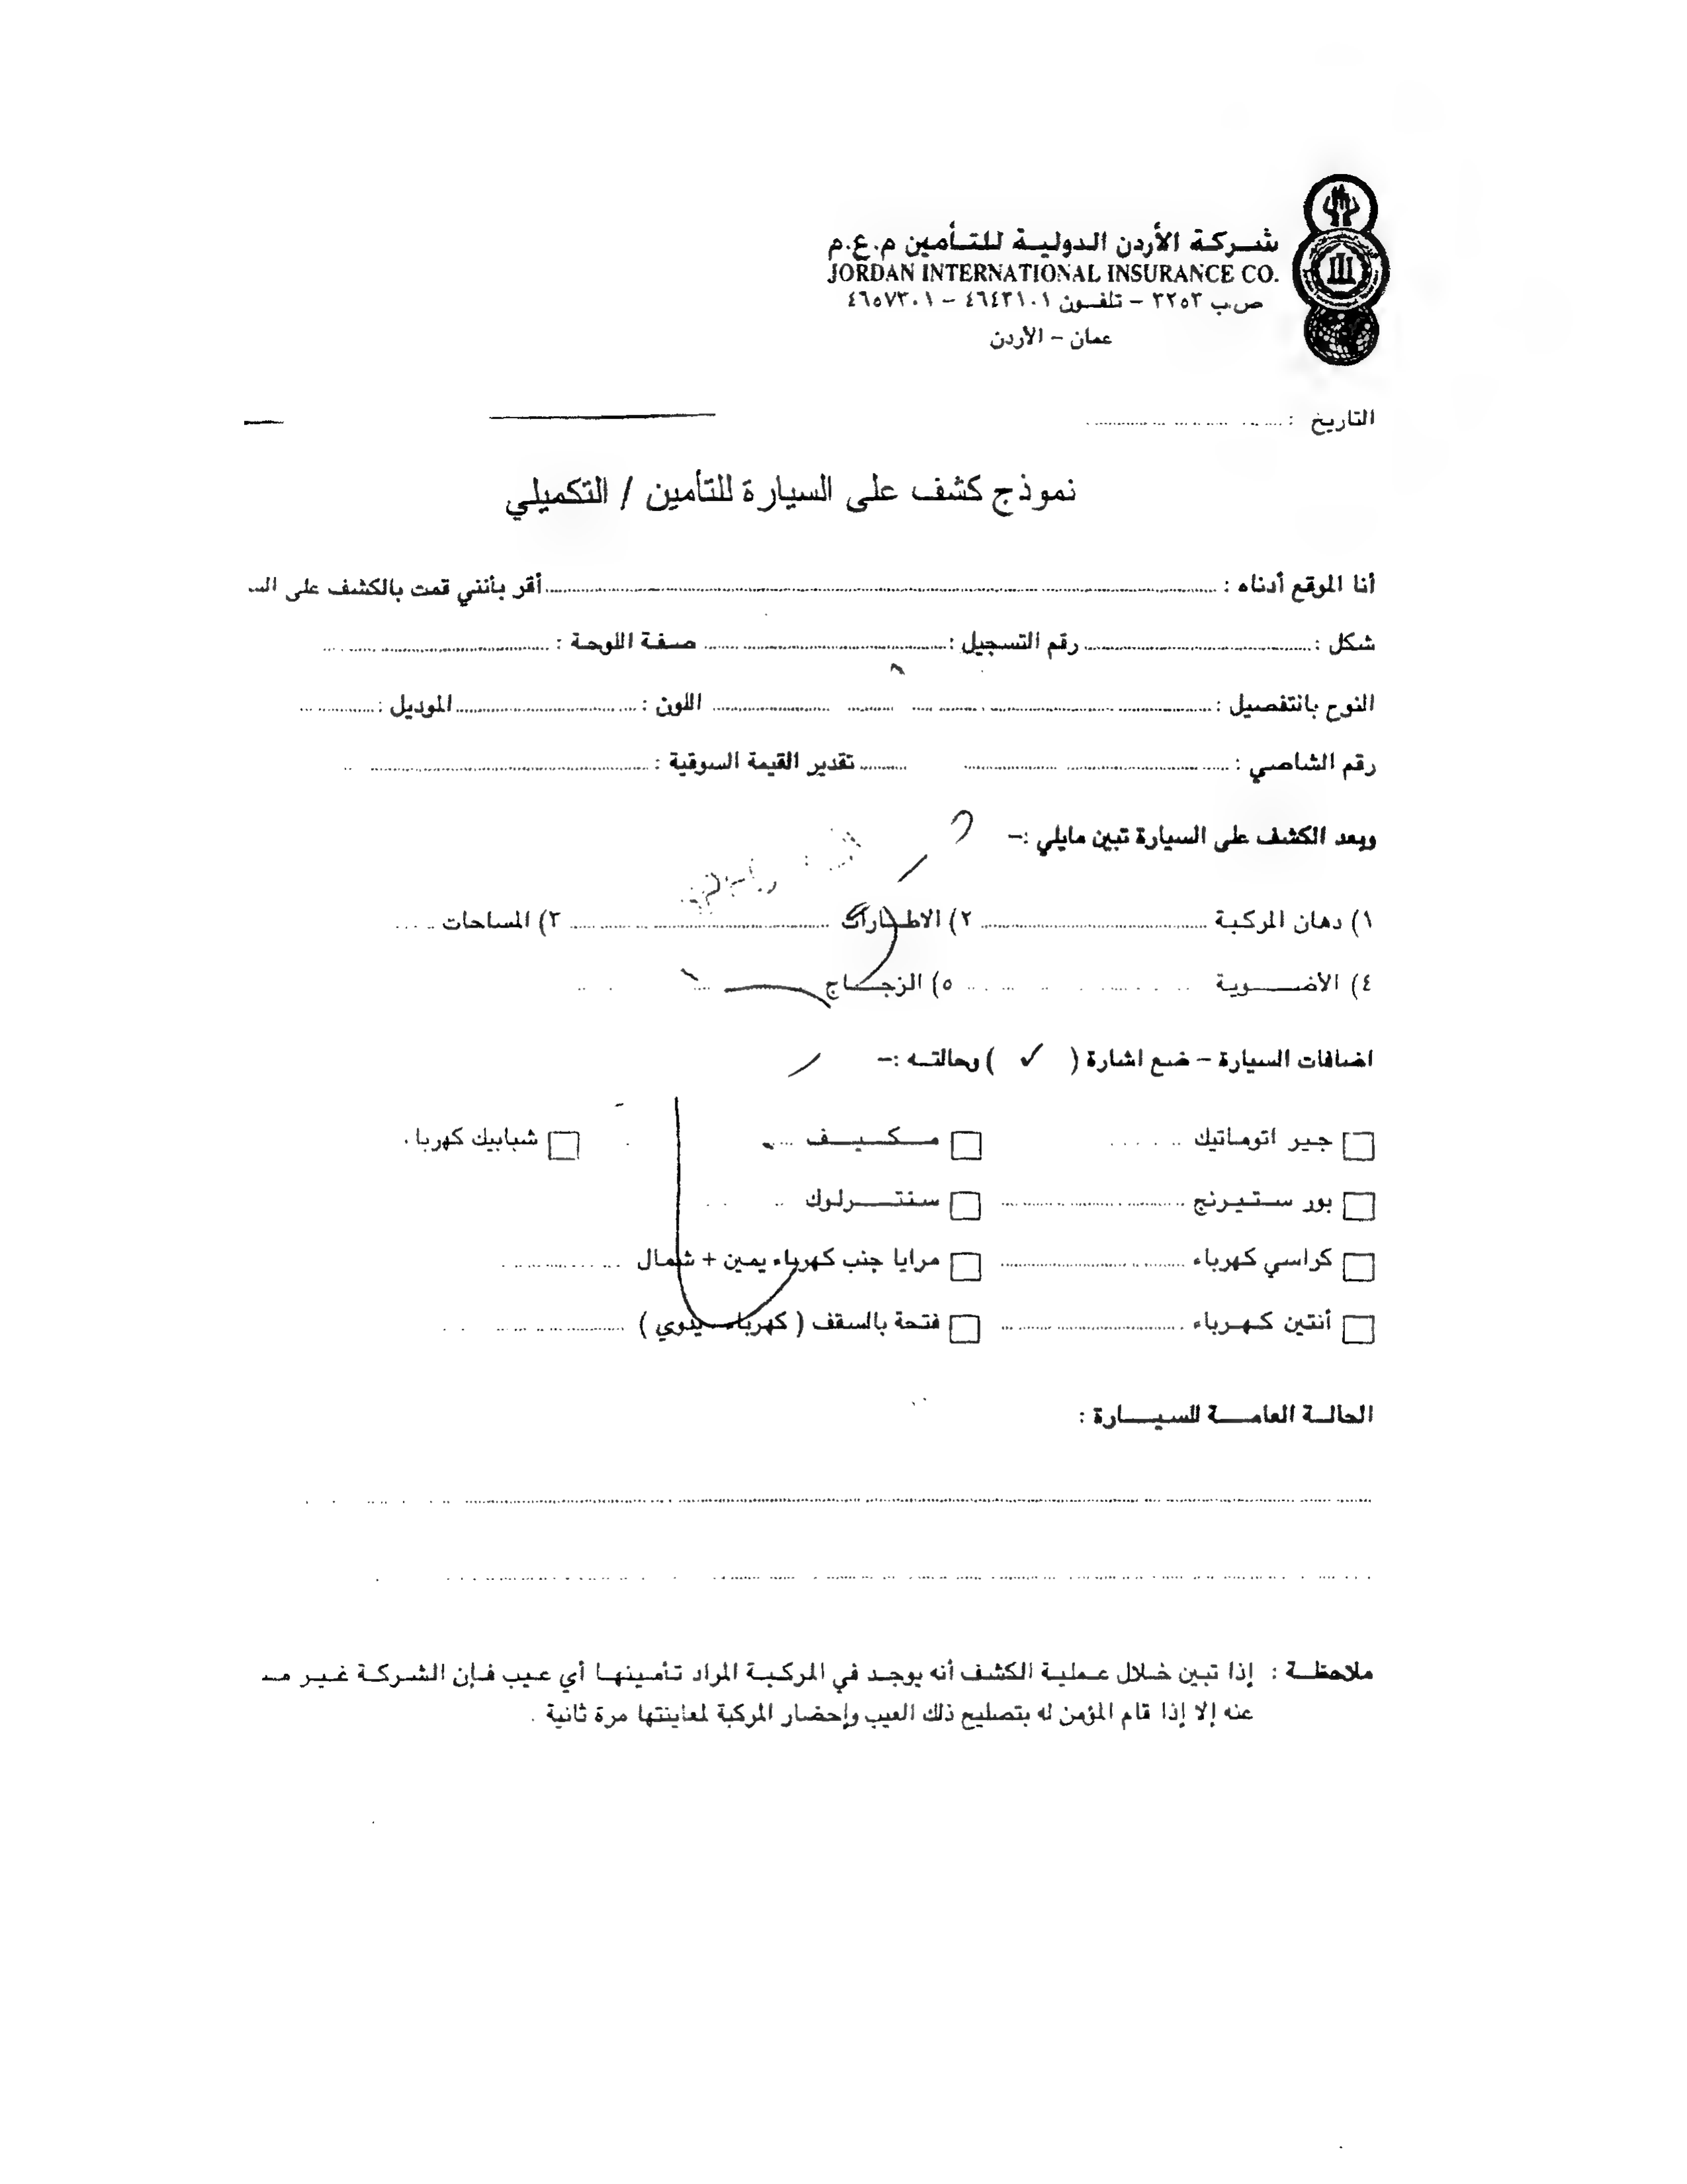 شركة الأردن الدولية للتأمين م.ع.م
JORDAN INTERNATIONAL INSURANCE CO.
ص.ب ٣٢٥٣ – تلفون ٤٦٤٣١٠١ – ٤٦٥٧٣٠١
عمان – الأردن
التاريخ :
نموذج كشف على السيارة للتأمين / التكميلي
أنا الموقع أدناه : أقر بأنني قمت بالكشف على
شكل : رقم التسجيل : صفة اللوحة :
النوع بالتفصيل : اللون : الموديل :
رقم الشاصي : تقدير القيمة السوقية :
وبعد الكشف على السيارة تبين مايلي :–
١) دهان المركبة ٢) الاطارات ٣) المساحات
٤) الأضوية ٥) الزجاج
اضافات السيارة – ضع اشارة ( ✓ ) وحالته :–
جير اتوماتيك مكيف شبابيك كهرباء
بور ستيرنج سنترلوك
كراسي كهرباء مرايا جنب كهرباء يمين + شمال
أنتين كهرباء فتحة بالسقف ( كهرباء – يدوي )
الحالة العامة للسيارة :
ملاحظة : إذا تبين خلال عملية الكشف أنه يوجد في المركبة المراد تأمينها أي عيب فإن الشركة غير
عنه إلا إذا قام المؤمن له بتصليح ذلك العيب وإحضار المركبة لمعاينتها مرة ثانية .